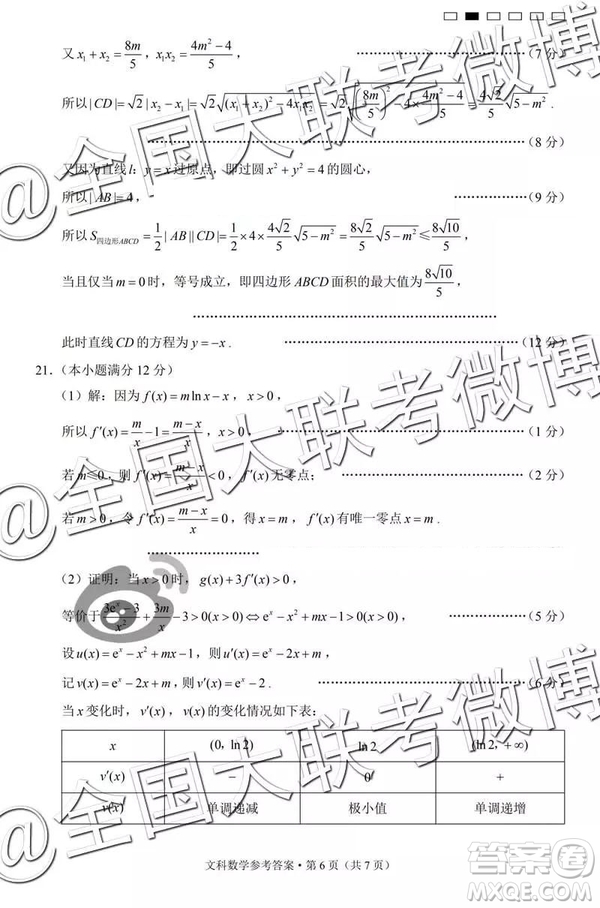 又 x₁ + x₂ = 8m/5，x₁x₂ = (4m² − 4)/5，（7 分）
所以 |CD| = √2|x₂ − x₁| = √2 √((x₁ + x₂)² − 4x₁x₂) = √2 √((8m/5)² − 4×(4m² − 4)/5) = (4√2/5)√(5 − m²).
（8 分）
又因为直线 l：y = x 过原点，即过圆 x² + y² = 4 的圆心，
所以 |AB| = 4，（9 分）
所以 S四边形ABCD = 1/2 |AB||CD| = 1/2 × 4 × (4√2/5)√(5 − m²) = (8√2/5)√(5 − m²) ≤ 8√10/5，
当且仅当 m = 0 时，等号成立，即四边形 ABCD 面积的最大值为 8√10/5，
此时直线 CD 的方程为 y = −x .（12 分）
21．（本小题满分 12 分）
（1）解：因为 f(x) = m ln x − x，x > 0，
所以 f′(x) = m/x − 1 = (m − x)/x，x > 0．（1 分）
若 m ≤ 0，则 f′(x) = (m − x)/x < 0，f′(x) 无零点；（2 分）
若 m > 0，令 f′(x) = (m − x)/x = 0，得 x = m，f′(x) 有唯一零点 x = m .
（2）证明：当 x > 0 时，g(x) + 3f′(x) > 0，
等价于 (3eˣ − 3)/x² + 3m/x − 3 > 0(x > 0) ⇔ eˣ − x² + mx − 1 > 0，（5 分）
设 u(x) = eˣ − x² + mx − 1，则 u′(x) = eˣ − 2x + m，
记 v(x) = eˣ − 2x + m，则 v′(x) = eˣ − 2 .（6 分）
当 x 变化时，v′(x)，v(x) 的变化情况如下表：
x (0，ln2) ln2 (ln2，+∞)
v′(x) − 0 +
v(x) 单调递减 极小值 单调递增
文科数学参考答案·第 6 页（共 7 页）
@全国大联考微博
@全国大联考微博
@全国大联考微博
答案圈
MXQE.COM